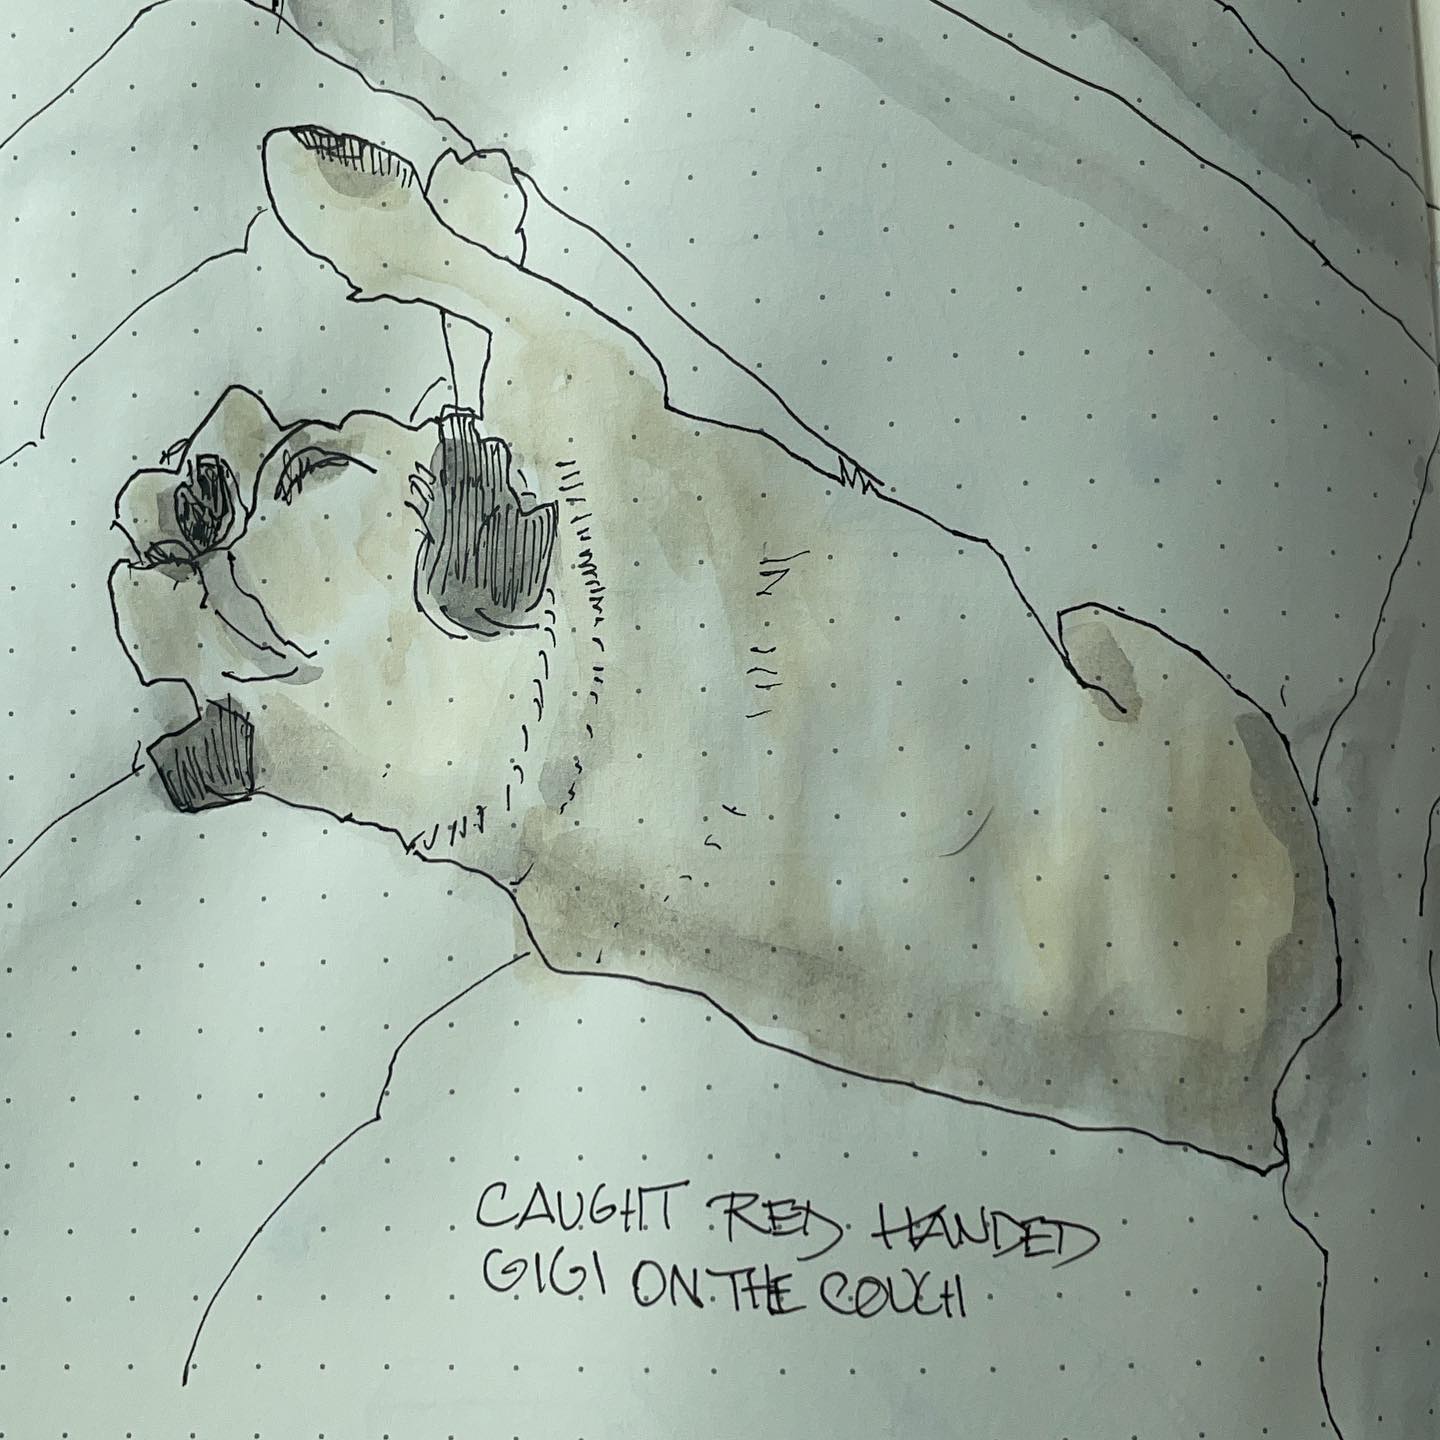 CAUGHT RED HANDED
GIGI ON THE COUCH